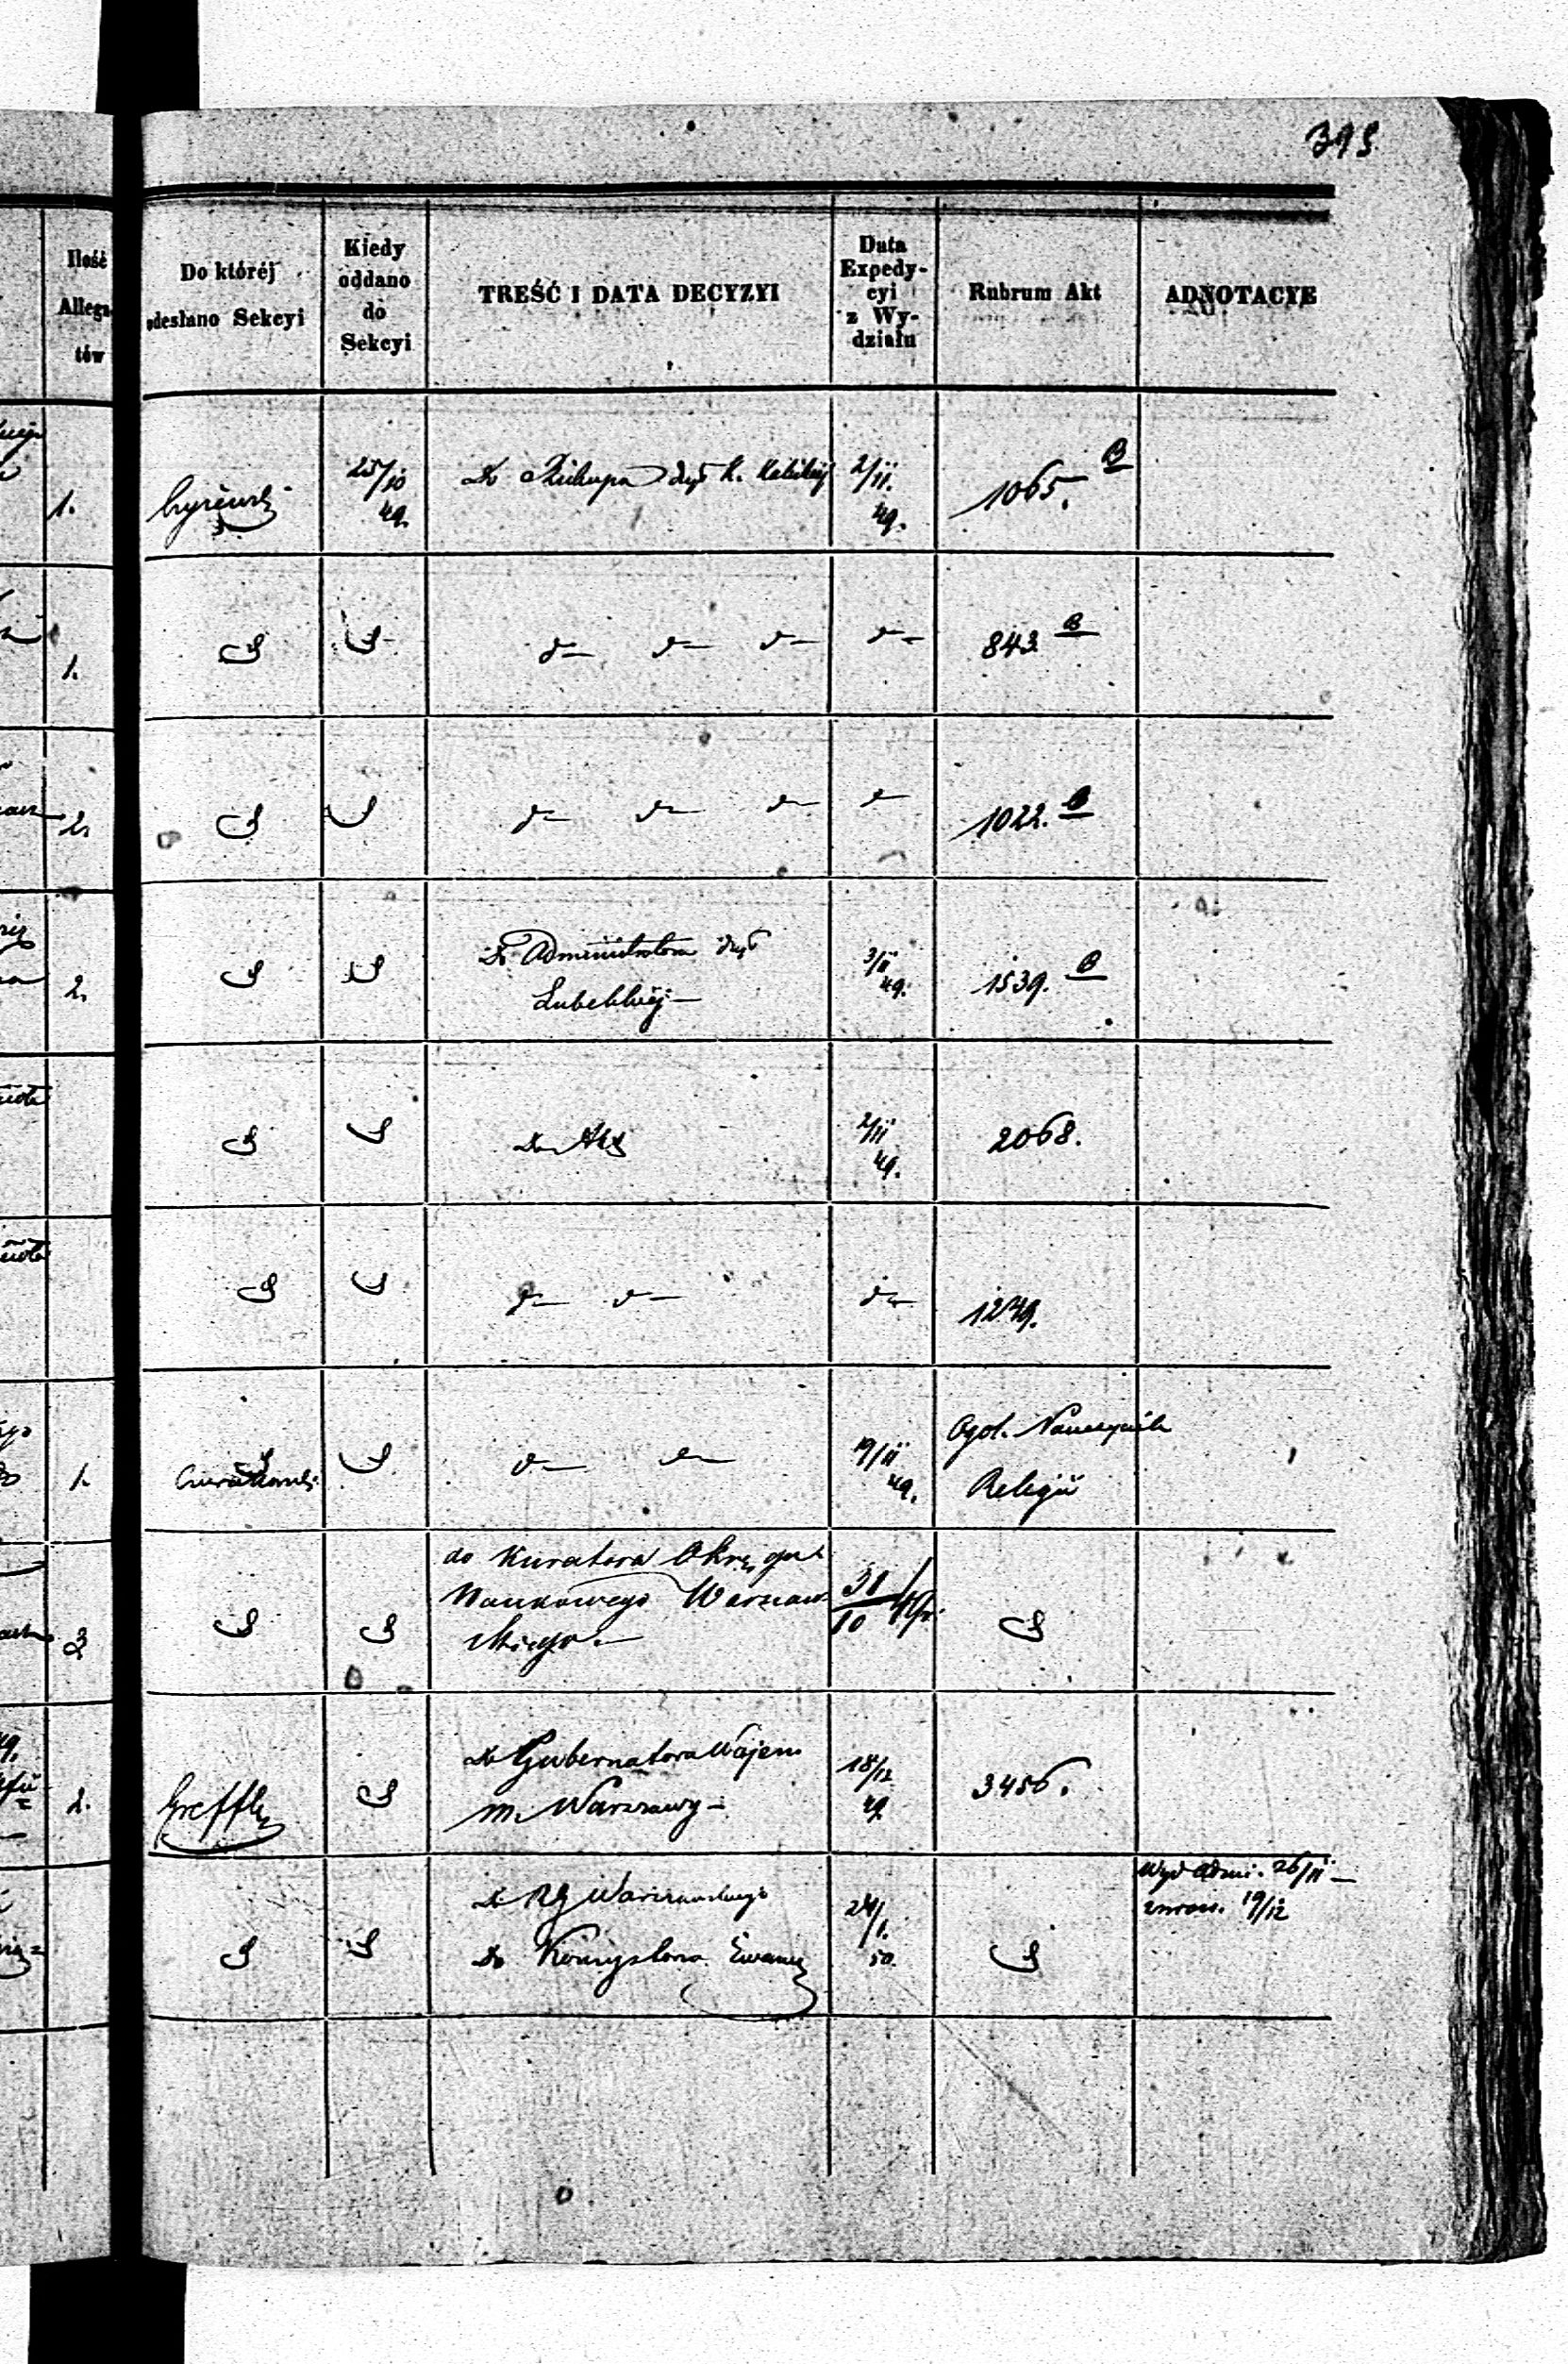 395
Ilość Allega tów
Do któréj odesłano Sekcyi
Kiedy oddano do Sekcyi
TREŚĆ I DATA DECYZYI
Data Expedycyi z Wydziału
Rubrum Akt
ADNOTACYE
1. 25/10 49. Do Biskupa dyec K. Kaliskiej 2/11. 49. 1065. B
1. d– d– d– d– 843. B
2. d– d– d– d– 1022. B
2. Do Administratora dyec
Lubelskiej– 3/11 49. 1539. B
Do Akt 2/11 49. 2068.
d– d– d– 1249.
1. d– d– 19/11 49. Ogól. Nauczyciele
Religii
3 do Kuratora Okręgu
Naukowego Warszaw
skiego.– 31/10 49.
2. Do Gubernatora Wojen
m. Warszawy– 18/12 49 3456.
Do RG Warszawskiego 24/1. 50. Wyd Admi. 26/11–
Do zwron. 19/12